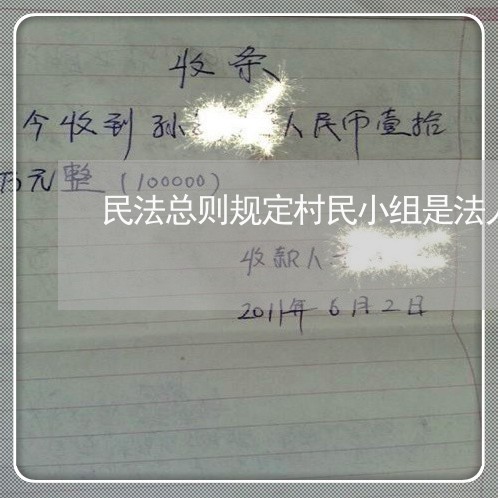 收条
今收到孙 人民币壹拾
万元整（100000）
民法总则规定村民小组是法人
收款人
2011年6月2日